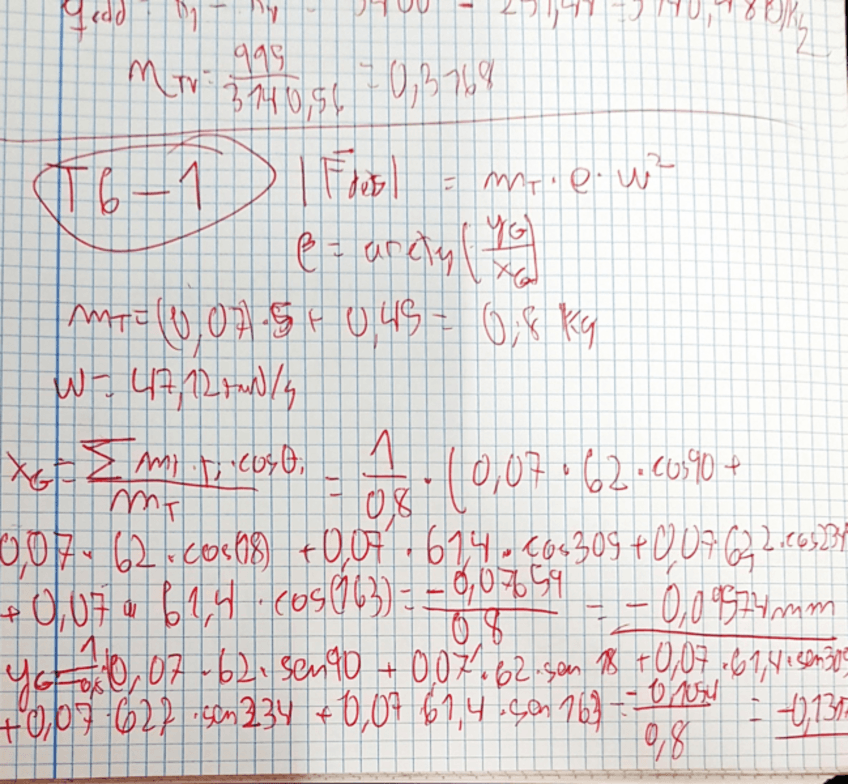 m_TV = 995/3140,56 = 0,3168
T6-1 |F_deb| = m_T · e · w²
= arctg (y_G/x_G)
m_T = (0,07)·5 + 0,45 = 0,8 kg
w = 47,12 rad/s
x_G = Σ m_i · r_i · cosθ_i / m_T = 1/0,8 · (0,07 · 62 · cos90 +
0,07 · 62 · cos(18) + 0,07 · 61,4 · cos309 + 0,07 · 62,2 · cos234
+ 0,07 · 61,4 · cos(163) = -0,07659/0,8 = -0,09574 mm
y_G = 1/0,8 (0,07 · 62 · sen90 + 0,07 · 62 · sen 18 + 0,07 · 61,4 · sen309
+ 0,07 · 622 · sen234 + 0,07 61,4 · sen 163 = -0,1054/0,8 =